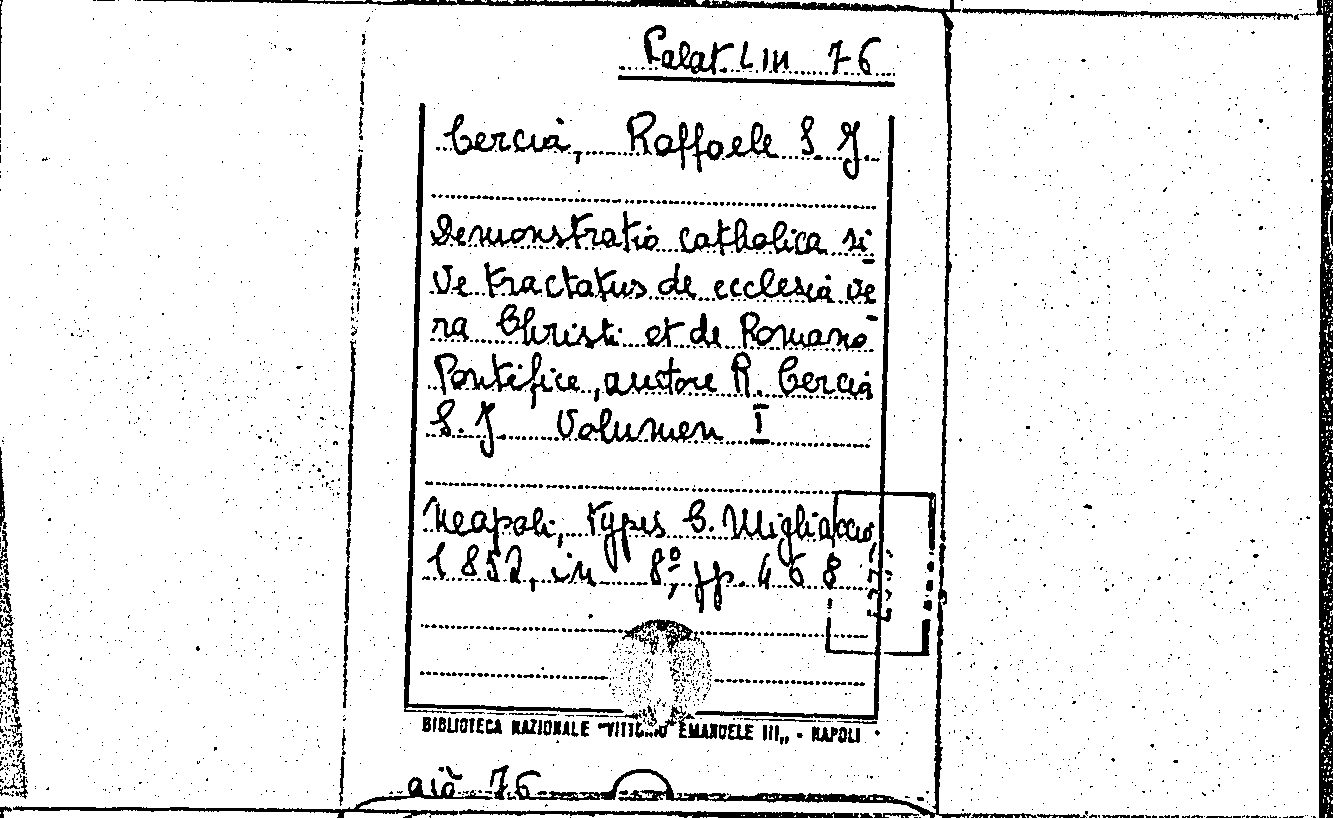 Palat. LIII 76
Cercià, Raffaele S. J.
Demonstratio catholica si
ve tractatus de ecclesia ve
ra Christi et de Romano
Pontifice, auctore R. Cercià
S. J. Volumen I
Neapoli, typis C. Migliaccio,
1852, in 8º, pp. 468
BIBLIOTECA NAZIONALE "VITTORIO EMANUELE III„ - NAPOLI
già 76